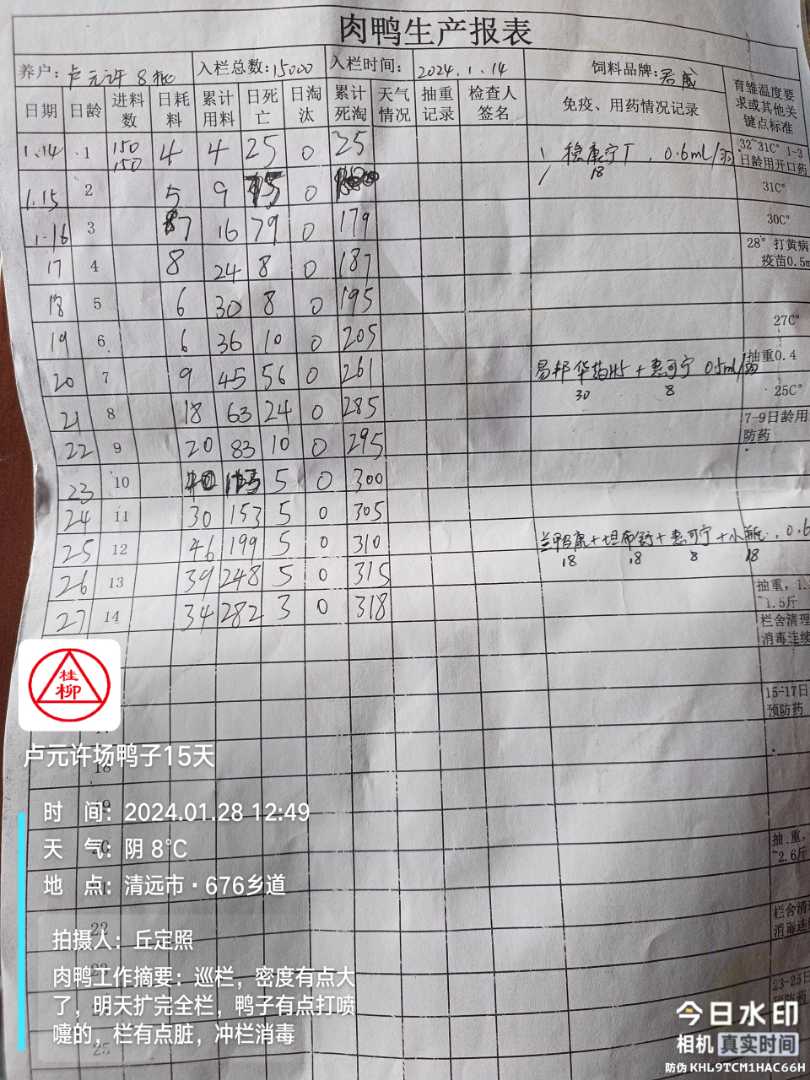 肉鸭生产报表
养户: 卢元许 8批 入栏总数: 15000 入栏时间: 2024.1.14 饲料品牌: 君威 育雏温度要求或其他关键点标准
日期 日龄 进料数 日耗料 累计用料 日死亡 日淘汰 累计死淘 天气情况 抽重记录 检查人签名 免疫、用药情况记录
1.14 1 150 150 4 4 25 0 25 稳康宁T. 0.6mL/羽 18 32~31C° 1-3日龄用开口药
1.15 2 5 9 75 0 31C°
1.16 3 7 16 79 0 179 30C°
17 4 8 24 8 0 187 28° 打黄病 疫苗0.5m
18 5 6 30 8 0 195
19 6 6 36 10 0 205 27C°
20 7 9 45 56 0 261 易邦 + 惠可宁 0.5ml/羽 30 8 抽重0.4 25C°
21 8 18 63 24 0 285
22 9 20 83 10 0 295 7-9日龄用 防药
23 10 40 123 5 0 300
24 11 30 153 5 0 305
25 12 46 199 5 0 310 + + 惠可宁 + 0.6 18 18 8 18
26 13 39 248 5 0 315 抽重, 1. ~1.5斤
27 14 34 282 3 0 318 栏舍清理 消毒连续
桂柳
15-17日 预防药
卢元许场鸭子15天
18
时 间: 2024.01.28 12:49
天 气: 阴 8℃
抽重, ~2.6斤
地 点: 清远市·676乡道
22
栏舍清 消毒连
拍摄人: 丘定照
肉鸭工作摘要: 巡栏，密度有点大
了，明天扩完全栏，鸭子有点打喷
嚏的，栏有点脏，冲栏消毒
23-25日
25
今日水印
相机 真实时间
防伪 KHL9TCM1HAC66H